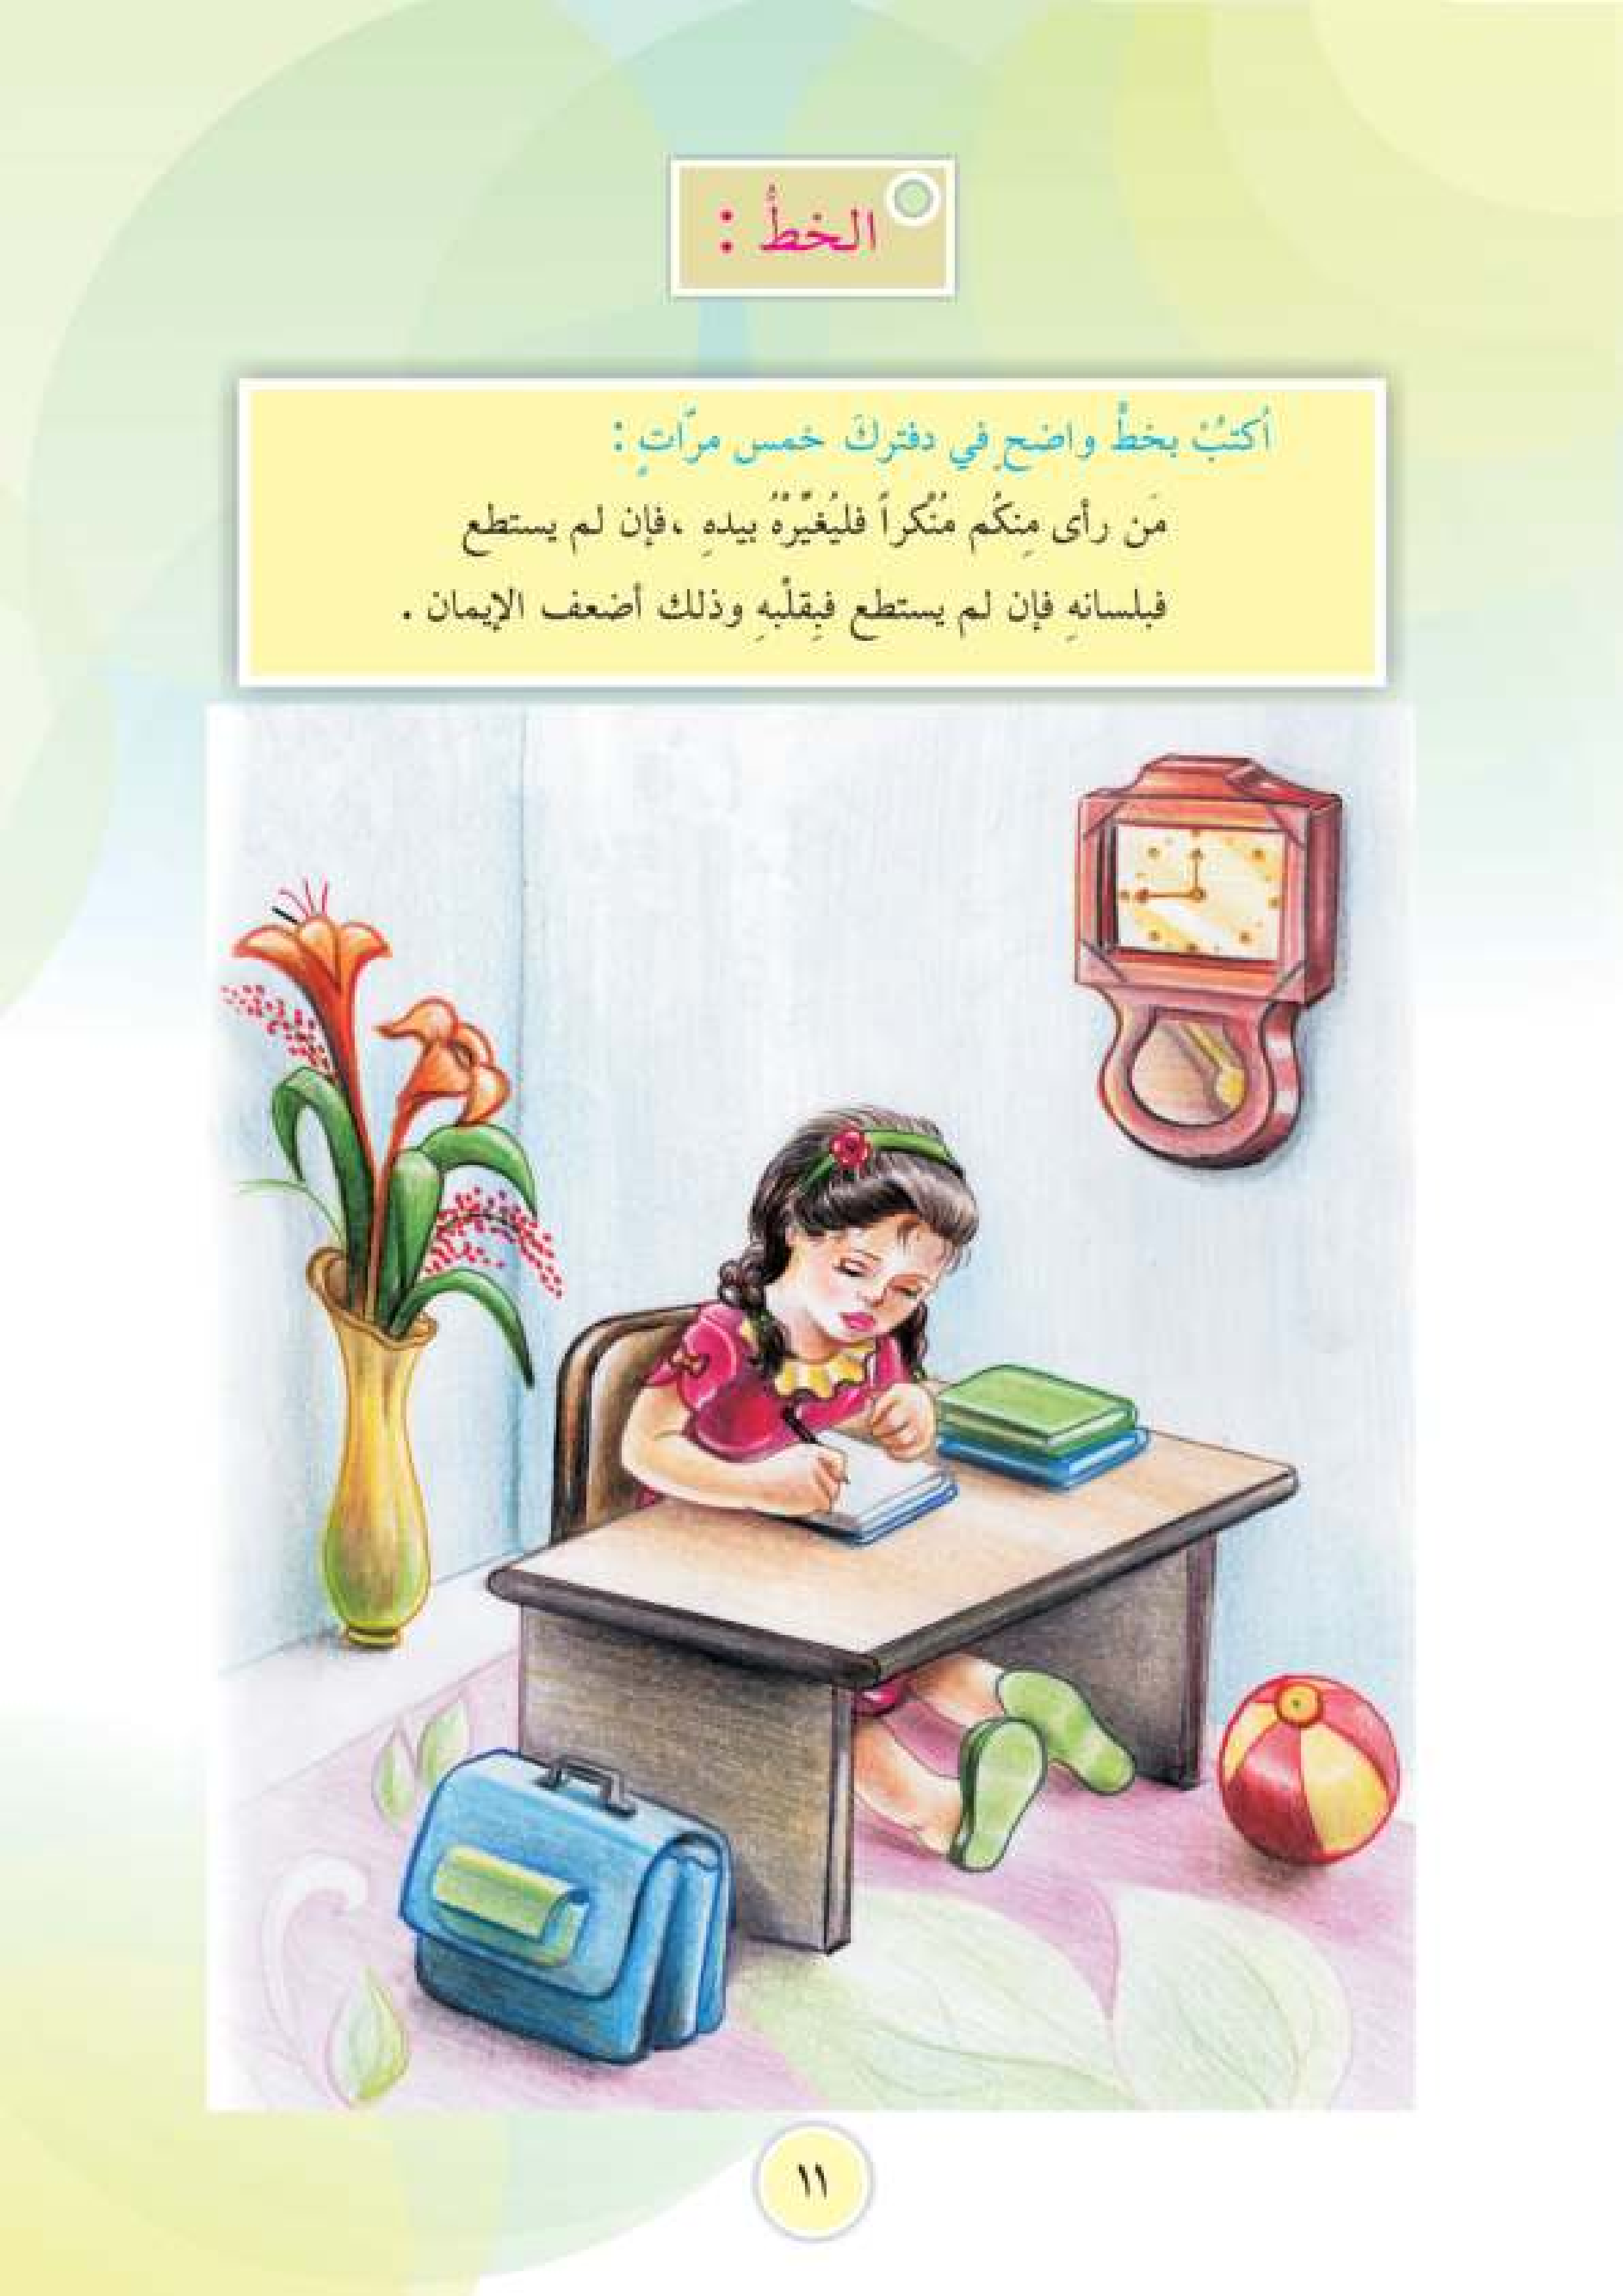 الخطُّ :
أكتبُ بخطٍّ واضحٍ في دفتركَ خمس مرّاتٍ :
مَن رأى مِنكُم مُنْكراً فليُغيّرْهُ بيدهِ ،فإن لم يستطع
فبلسانهِ فإن لم يستطع فبِقلْبهِ وذلك أضعف الإيمان .
١١